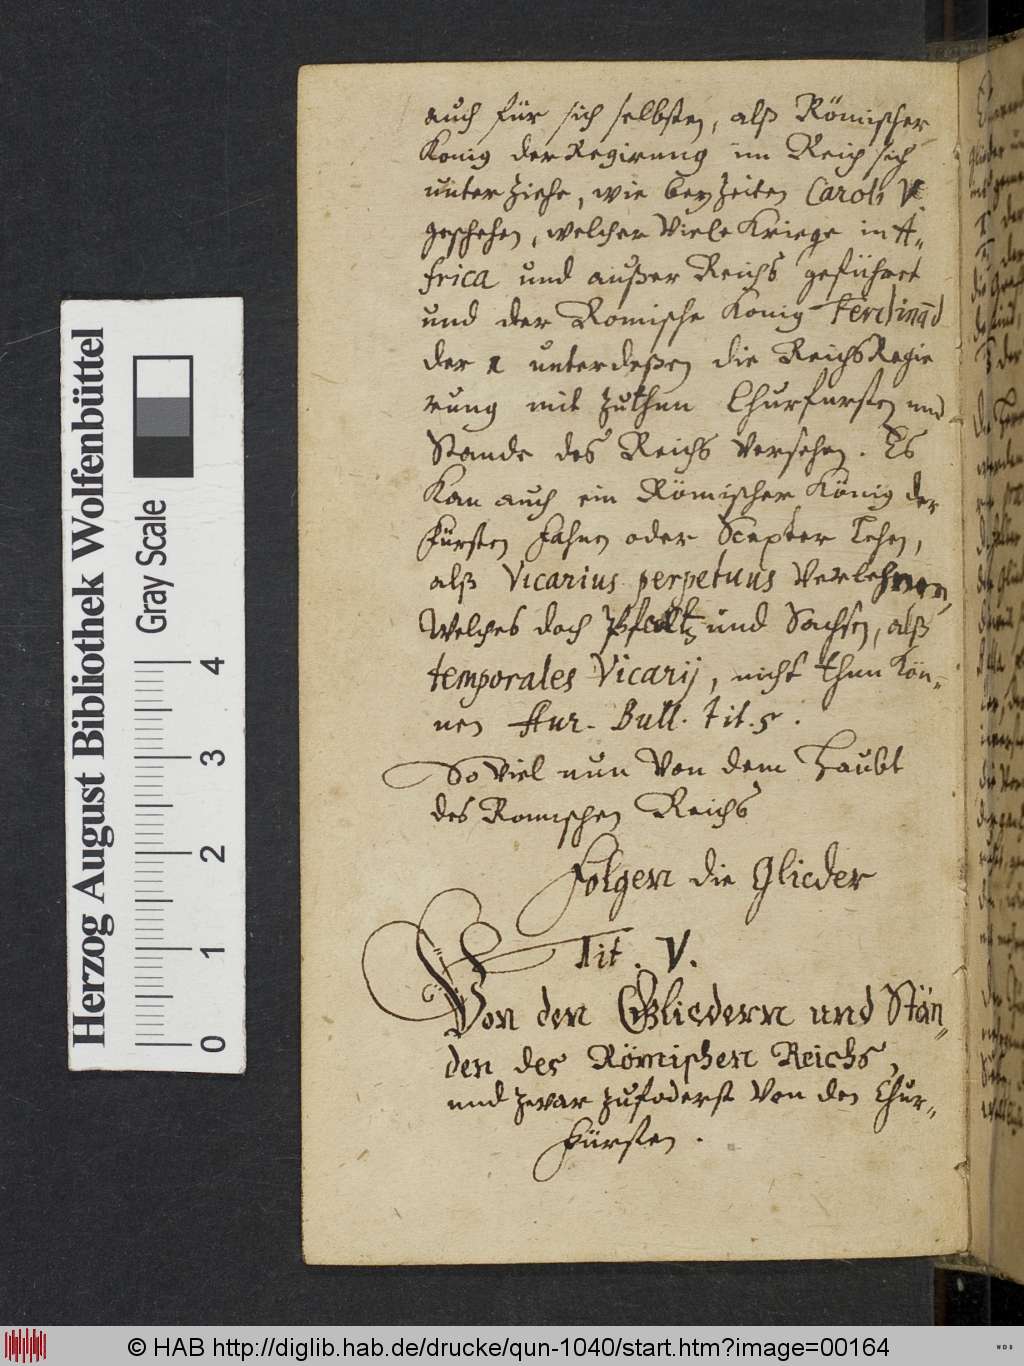 auch für sich selbsten, alß Römischer
König der Regirung im Reich sich
unterziehe, wie bey Zeiten Caroli V.
geschehen, welcher viele Kriege in A-
frica und außer Reichs geführet
und der Romische Konig Ferdinād
der 1 unterdeßen die ReichsRegie
rung mit zuthun Churfursten und
Stande des Reichs versehen. Es
Kan auch ein Römischer König der
Fürsten Fahnen oder Scepter Lehen,
alß Vicarius perpetuus verlehnen,
Welches doch Pfaltz und Sachsen, alß
temporales Vicarij, nicht thun Kön-
nen Aur. Bull. tit. 5.
So viel nun von dem Haubt
des Romischen Reichs
Folgen die Glieder
Tit. V.
Von den Gliedern und Stän-
den des Römischen Reichs,
und zwar zufoderst von den Chur-
Fürsten.
Herzog August Bibliothek Wolfenbüttel
Gray Scale
0 1 2 3 4
© HAB http://diglib.hab.de/drucke/qun-1040/start.htm?image=00164